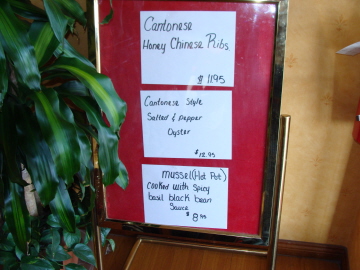 Cantonese
Honey Chinese Ribs
$ 11.95
Cantonese Style
Salted & pepper
Oyster
$ 12.95
mussel (Hot Pot)
cooked with spicy
basil black bean
Sauce
$ 8.95